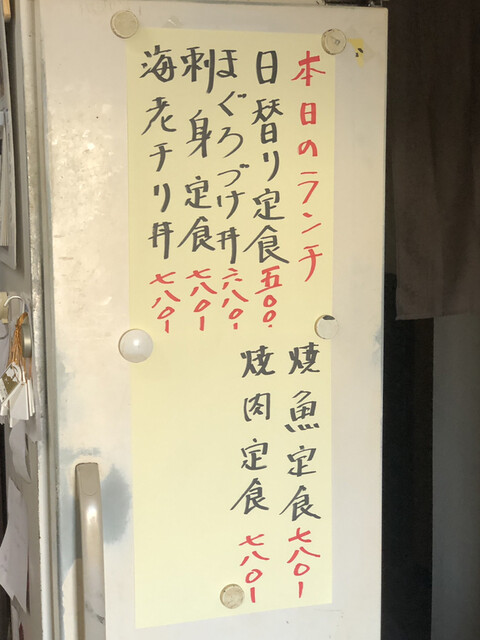 本日のランチ
日替り定食 五〇〇.
まぐろづけ丼 六八〇ー
刺身定食 七八〇ー
海老チリ丼 七八〇ー
焼魚定食 七八〇ー
焼肉定食 七八〇ー